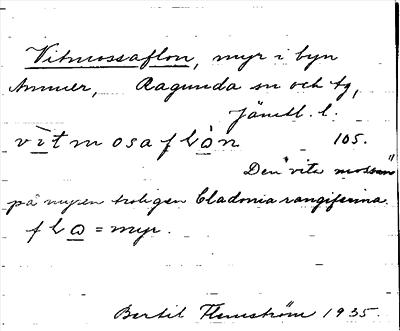 Vitmossaflon, myr i byn
Ammer, Ragunda sn och tg,
Jämtl. l.
vìtmosaflὰn 105.
Den "vita mossan"
på myren troligen Cladonia rangiferina.
flα = myr.
Bertil Flemström 1935.